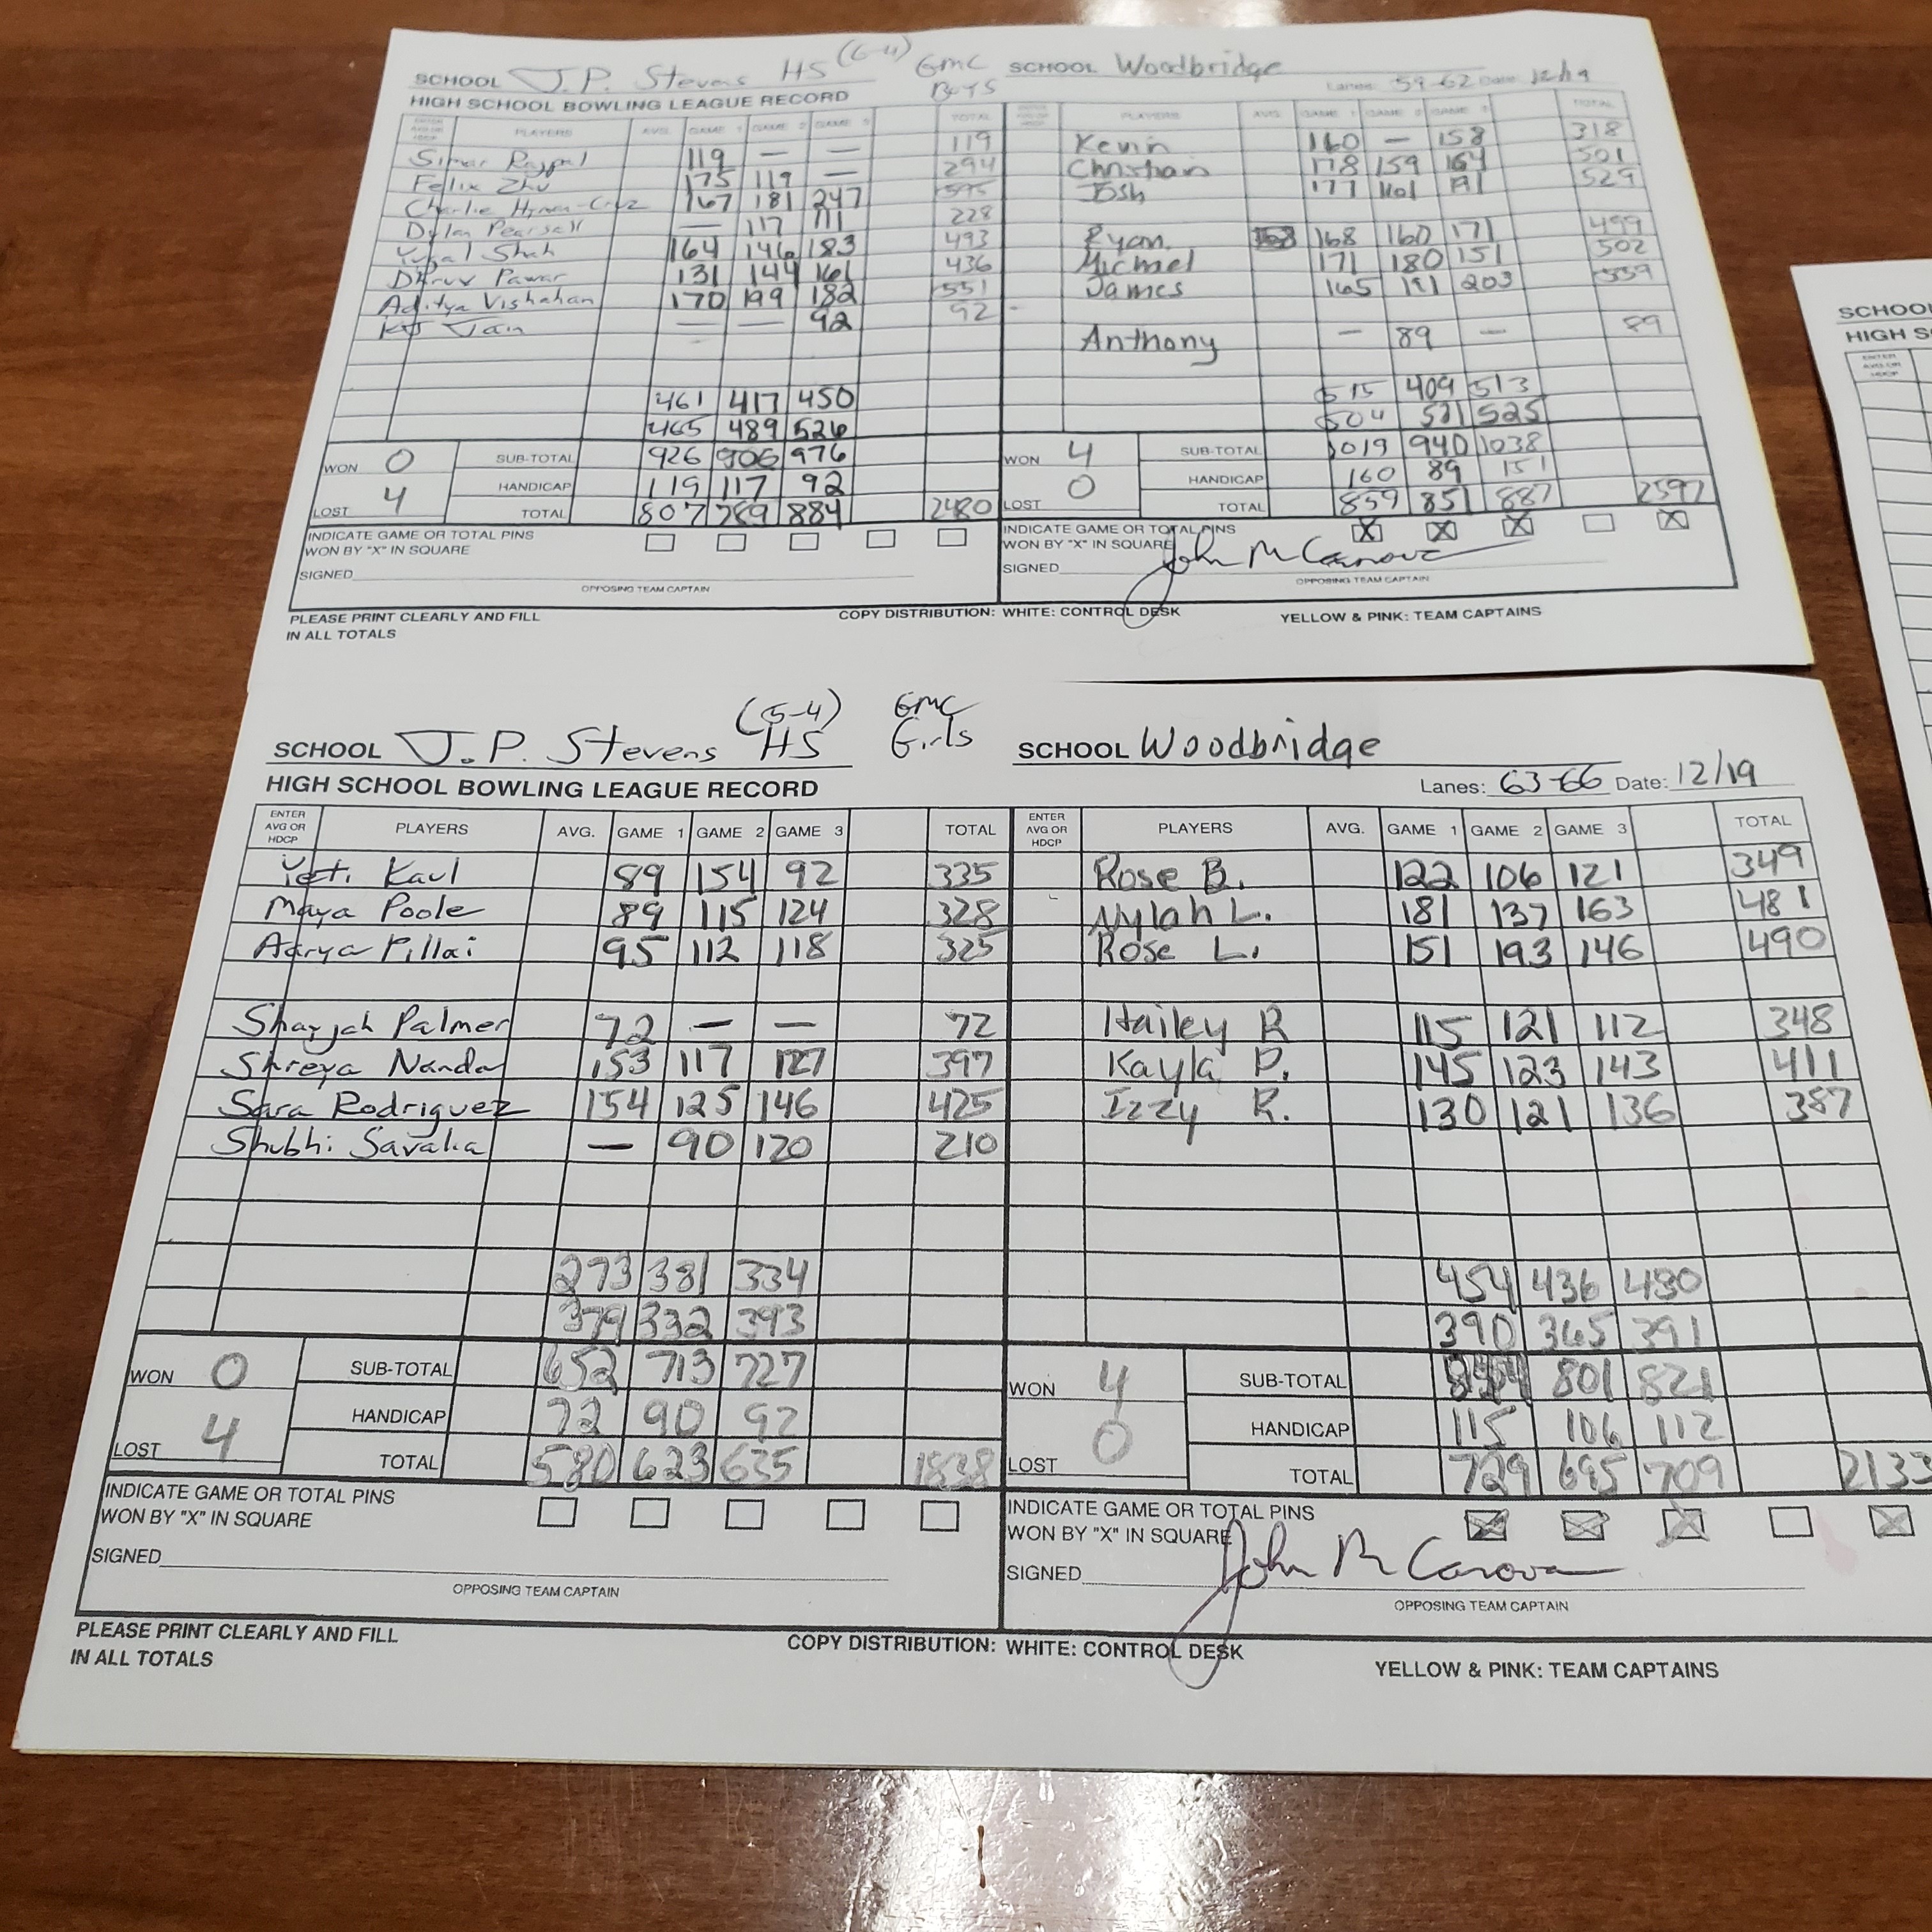 (6-4) GMC
SCHOOL J.P. Stevens HS BOYS SCHOOL Woodbridge
HIGH SCHOOL BOWLING LEAGUE RECORD Lanes: 59-62 Date: 12/19
ENTER AVG OR HDCP PLAYERS AVG. GAME 1 GAME 2 GAME 3 TOTAL ENTER AVG OR HDCP PLAYERS AVG. GAME 1 GAME 2 GAME 3 TOTAL
Simar Rajpal 119 — — 119 Kevin 160 — 158 318
Felix Zhu 175 119 — 294 Christian 178 159 164 501
Charlie Hyman-Cruz 167 181 247 595 Josh 177 161 191 529
Dylan Pearsall — 117 111 228
Yugal Shah 164 146 183 493 Ryan 168 160 171 499
Dhruv Pawar 131 144 161 436 Michael 171 180 151 502
Aditya Vishahan 170 199 182 551 James 165 191 203 559
KJ Jain — — 92 92
Anthony — 89 — 89
461 417 450 515 409 513
465 489 526 504 531 525
WON 0 SUB-TOTAL 926 906 976 WON 4 SUB-TOTAL 1019 940 1038
HANDICAP 119 117 92 HANDICAP 160 89 151
LOST 4 TOTAL 807 789 884 2480 LOST 0 TOTAL 859 851 887 2597
INDICATE GAME OR TOTAL PINS INDICATE GAME OR TOTAL PINS X X X X
WON BY "X" IN SQUARE WON BY "X" IN SQUARE
SIGNED SIGNED John M Canova
OPPOSING TEAM CAPTAIN OPPOSING TEAM CAPTAIN
PLEASE PRINT CLEARLY AND FILL COPY DISTRIBUTION: WHITE: CONTROL DESK YELLOW & PINK: TEAM CAPTAINS
IN ALL TOTALS
SCHOO
HIGH S
ENTER
AVG OR
HDCP
(5-4) GMC
SCHOOL J.P. Stevens HS Girls SCHOOL Woodbridge
HIGH SCHOOL BOWLING LEAGUE RECORD Lanes: 63-66 Date: 12/19
ENTER AVG OR HDCP PLAYERS AVG. GAME 1 GAME 2 GAME 3 TOTAL ENTER AVG OR HDCP PLAYERS AVG. GAME 1 GAME 2 GAME 3 TOTAL
Yeti Kaul 89 154 92 335 Rose B. 122 106 121 349
Maya Poole 89 115 124 328 Nylah L. 181 137 163 481
Aarya Pillai 95 112 118 325 Rose L. 151 193 146 490
Shayjah Palmer 72 — — 72 Hailey R 115 121 112 348
Shreya Nanda 153 117 127 397 Kayla P. 145 123 143 411
Sara Rodriguez 154 125 146 425 Izzy R. 130 121 136 387
Shubhi Savalia — 90 120 210
273 381 334 454 436 430
379 332 393 390 365 391
WON 0 SUB-TOTAL 652 713 727 WON 4 SUB-TOTAL 801 821
HANDICAP 72 90 92 HANDICAP 115 106 112
LOST 4 TOTAL 580 623 635 1838 LOST 0 TOTAL 729 695 709 2133
INDICATE GAME OR TOTAL PINS INDICATE GAME OR TOTAL PINS X X X X
WON BY "X" IN SQUARE WON BY "X" IN SQUARE
SIGNED SIGNED John M Canova
OPPOSING TEAM CAPTAIN OPPOSING TEAM CAPTAIN
PLEASE PRINT CLEARLY AND FILL COPY DISTRIBUTION: WHITE: CONTROL DESK YELLOW & PINK: TEAM CAPTAINS
IN ALL TOTALS